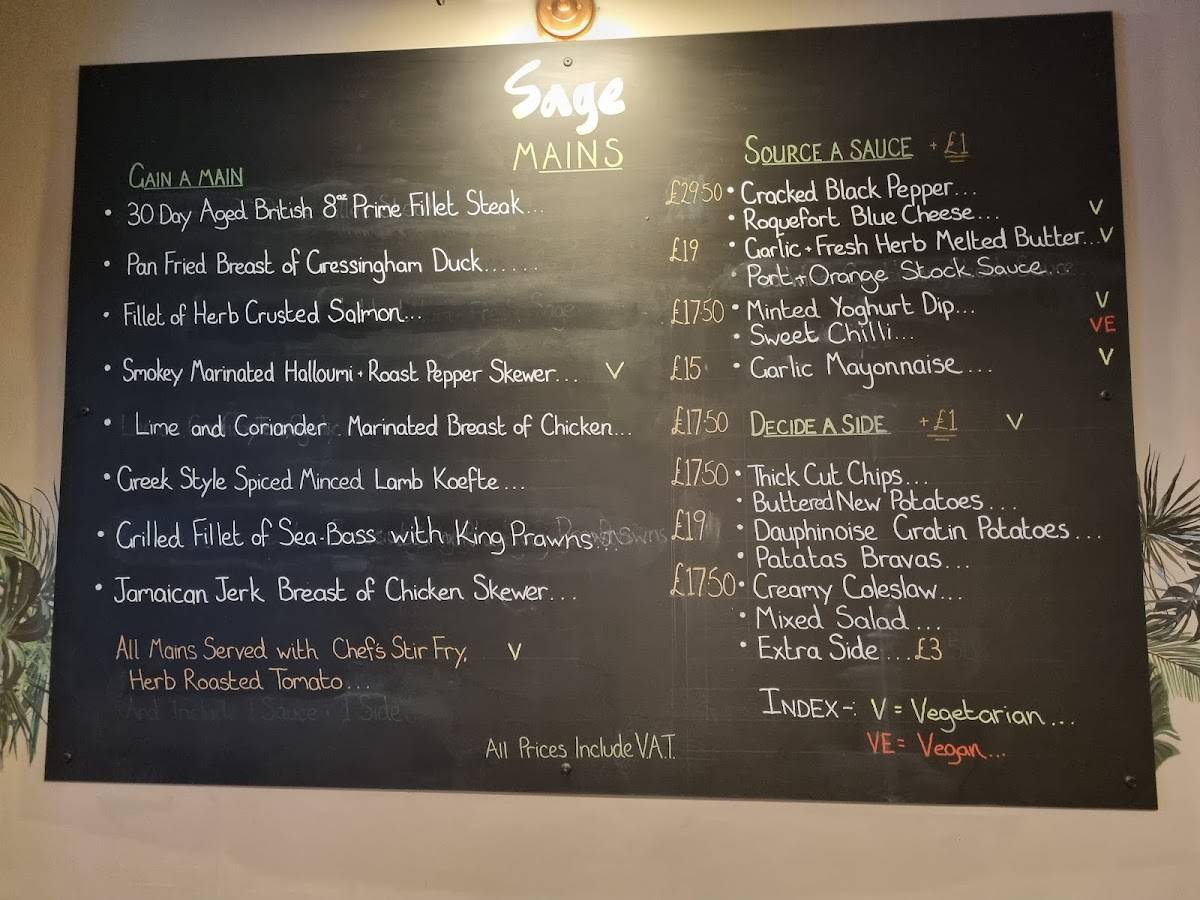 Sage
MAINS
GAIN A MAIN
• 30 Day Aged British 8oz Prime Fillet Steak... £29.50
• Pan Fried Breast of Gressingham Duck...... £19
• Fillet of Herb Crusted Salmon... £17.50
• Smokey Marinated Halloumi + Roast Pepper Skewer... V £15
• Lime and Coriander Marinated Breast of Chicken... £17.50
• Greek Style Spiced Minced Lamb Koefte... £17.50
• Grilled Fillet of Sea-Bass with King Prawns... £19
• Jamaican Jerk Breast of Chicken Skewer... £17.50
All Mains Served with Chef's Stir Fry, V
Herb Roasted Tomato...
And Include 1 Sauce + 1 Side
SOURCE A SAUCE + £1
• Cracked Black Pepper...
• Roquefort Blue Cheese... V
• Garlic + Fresh Herb Melted Butter... V
• Port + Orange Stock Sauce...
• Minted Yoghurt Dip... V
• Sweet Chilli... VE
• Garlic Mayonnaise... V
DECIDE A SIDE + £1 V
• Thick Cut Chips...
• Buttered New Potatoes...
• Dauphinoise Gratin Potatoes...
• Patatas Bravas...
• Creamy Coleslaw...
• Mixed Salad...
• Extra Side... £3
INDEX-: V = Vegetarian...
VE = Vegan...
All Prices Include V.A.T.